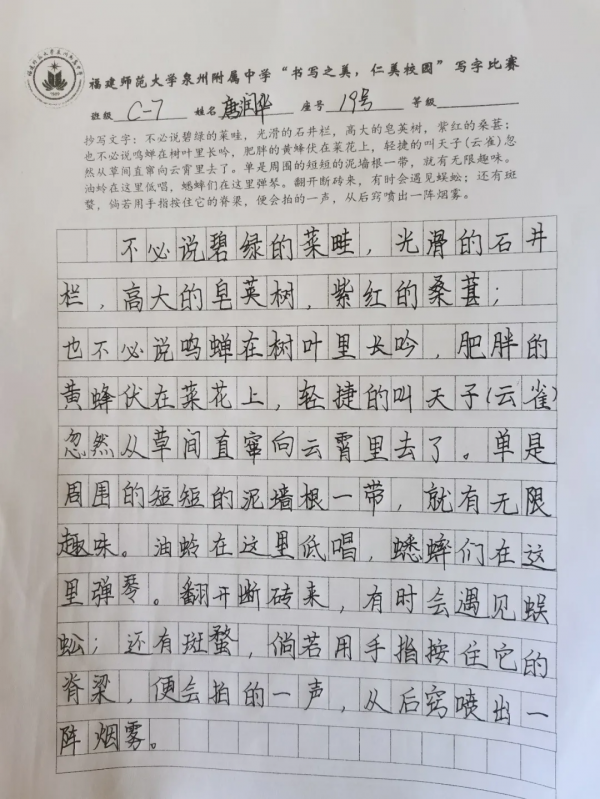 福建师范大学泉州附属中学“书写之美，仁美校园”写字比赛
班级 C-7 姓名 唐润华 座号 19号 等级
抄写文字：不必说碧绿的菜畦，光滑的石井栏，高大的皂荚树，紫红的桑葚；
也不必说鸣蝉在树叶里长吟，肥胖的黄蜂伏在菜花上，轻捷的叫天子(云雀)忽
然从草间直窜向云霄里去了。单是周围的短短的泥墙根一带，就有无限趣味。
油蛉在这里低唱，蟋蟀们在这里弹琴。翻开断砖来，有时会遇见蜈蚣；还有斑
蝥，倘若用手指按住它的脊梁，便会拍的一声，从后窍喷出一阵烟雾。
不必说碧绿的菜畦，光滑的石井
栏，高大的皂英树，紫红的桑葚；
也不必说鸣蝉在树叶里长吟，肥胖的
黄蜂伏在菜花上，轻捷的叫天子(云雀)
忽然从草间直窜向云霄里去了。单是
周围的短短的泥墙根一带，就有无限
趣味。油蛉在这里低唱，蟋蟀们在这
里弹琴。翻开断砖来，有时会遇见蜈
蚣；还有斑蝥，倘若用手指按住它的
脊梁，便会拍的一声，从后窍喷出一
阵烟雾。